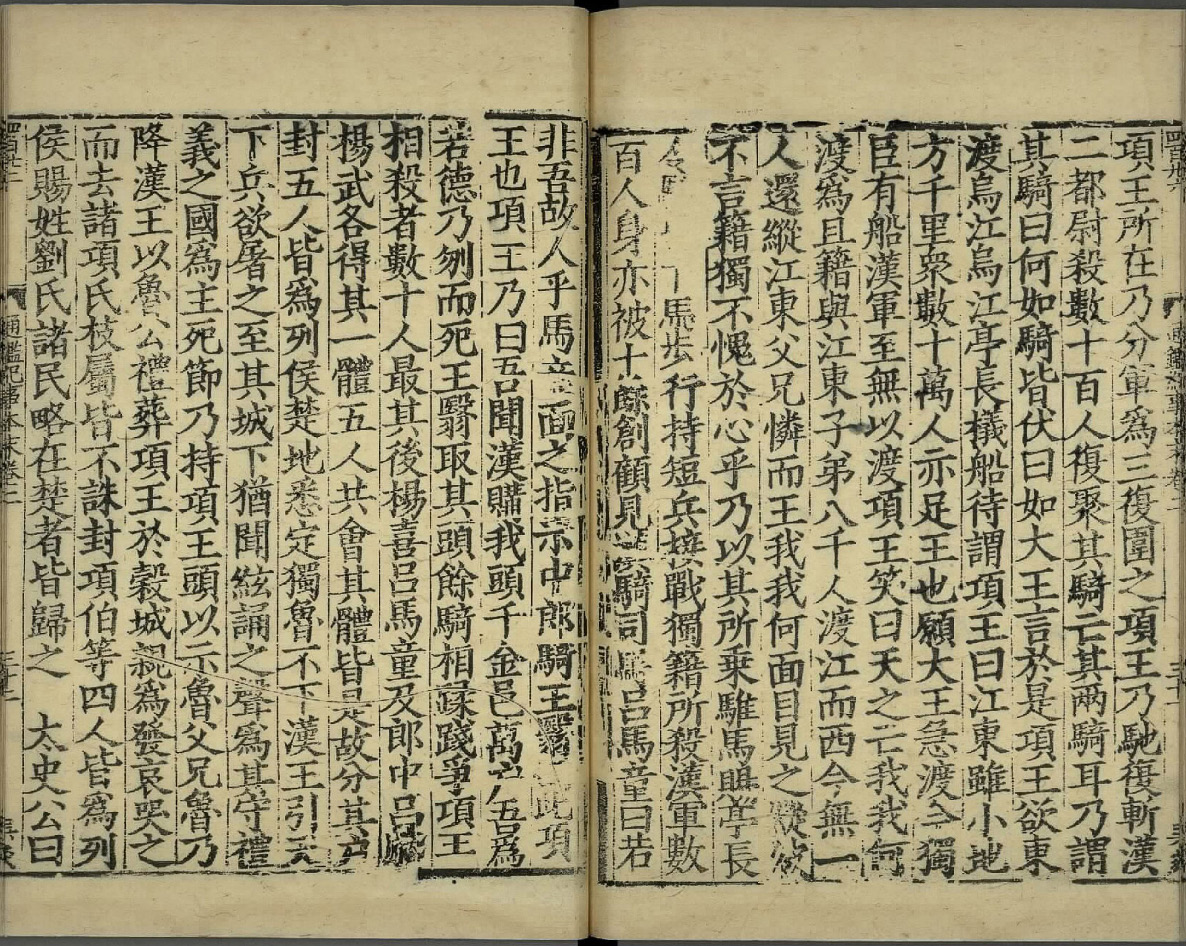 項王所在乃分軍為三復圍之項王乃馳復斬漢
二都尉殺數十百人復聚其騎亡其兩騎耳乃謂
其騎曰何如騎皆伏曰如大王言於是項王欲東
渡烏江烏江亭長檥船待謂項王曰江東雖小地
方千里眾數十萬人亦足王也願大王急渡今獨
臣有船漢軍至無以渡項王笑曰天之亡我我何
渡為且籍與江東子弟八千人渡江而西今無一
人還縱江東父兄憐而王我我何面目見之縱彼
不言籍獨不愧於心乎乃以其所乘騅馬賜亭長
下馬步行持短兵接戰獨籍所殺漢軍數
百人身亦被十餘創顧見漢騎司馬呂馬童曰若
非吾故人乎馬童面之指示中郎騎王翳曰此項
王也項王乃曰吾聞漢購我頭千金邑萬戶吾為
若德乃刎而死王翳取其頭餘騎相蹂踐爭項王
相殺者數十人最其後楊喜呂馬童及郎中呂勝
楊武各得其一體五人共會其體皆是故分其戶
封五人皆為列侯楚地悉定獨魯不下漢王引天
下兵欲屠之至其城下猶聞絃誦之聲為其守禮
義之國為主死節乃持項王頭以示魯父兄魯乃
降漢王以魯公禮葬項王於穀城親為發哀哭之
而去諸項氏枝屬皆不誅封項伯等四人皆為列
侯賜姓劉氏諸民略在楚者皆歸之　太史公曰
通鑑紀事本末卷二